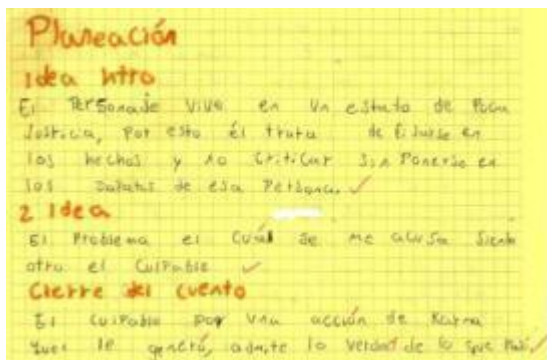 Planeación
Idea intro
El Personaje vive en un estado de Poca
Justicia, Por esto él trata de fijarse en
los hechos y no criticar sin Ponerse en
los zapatos de esa Persona.
2 Idea
El Problema el cuál se me acusa siendo
otro el culpable
Cierre del cuento
El culpable por una acción de Karma
que le generó, admite la verdad de lo que Pasó.